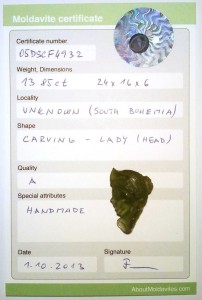 Moldavite certificate
Certificate number
05DSCF4932
Weight, Dimensions
13.85ct 24x16x6
Locality
UNKNOWN (SOUTH BOHEMIA)
Shape
CARVING - LADY (HEAD)
Quality
A
Special attributes
HANDMADE
Date
Signature
1.10.2013
AboutMoldavites.com